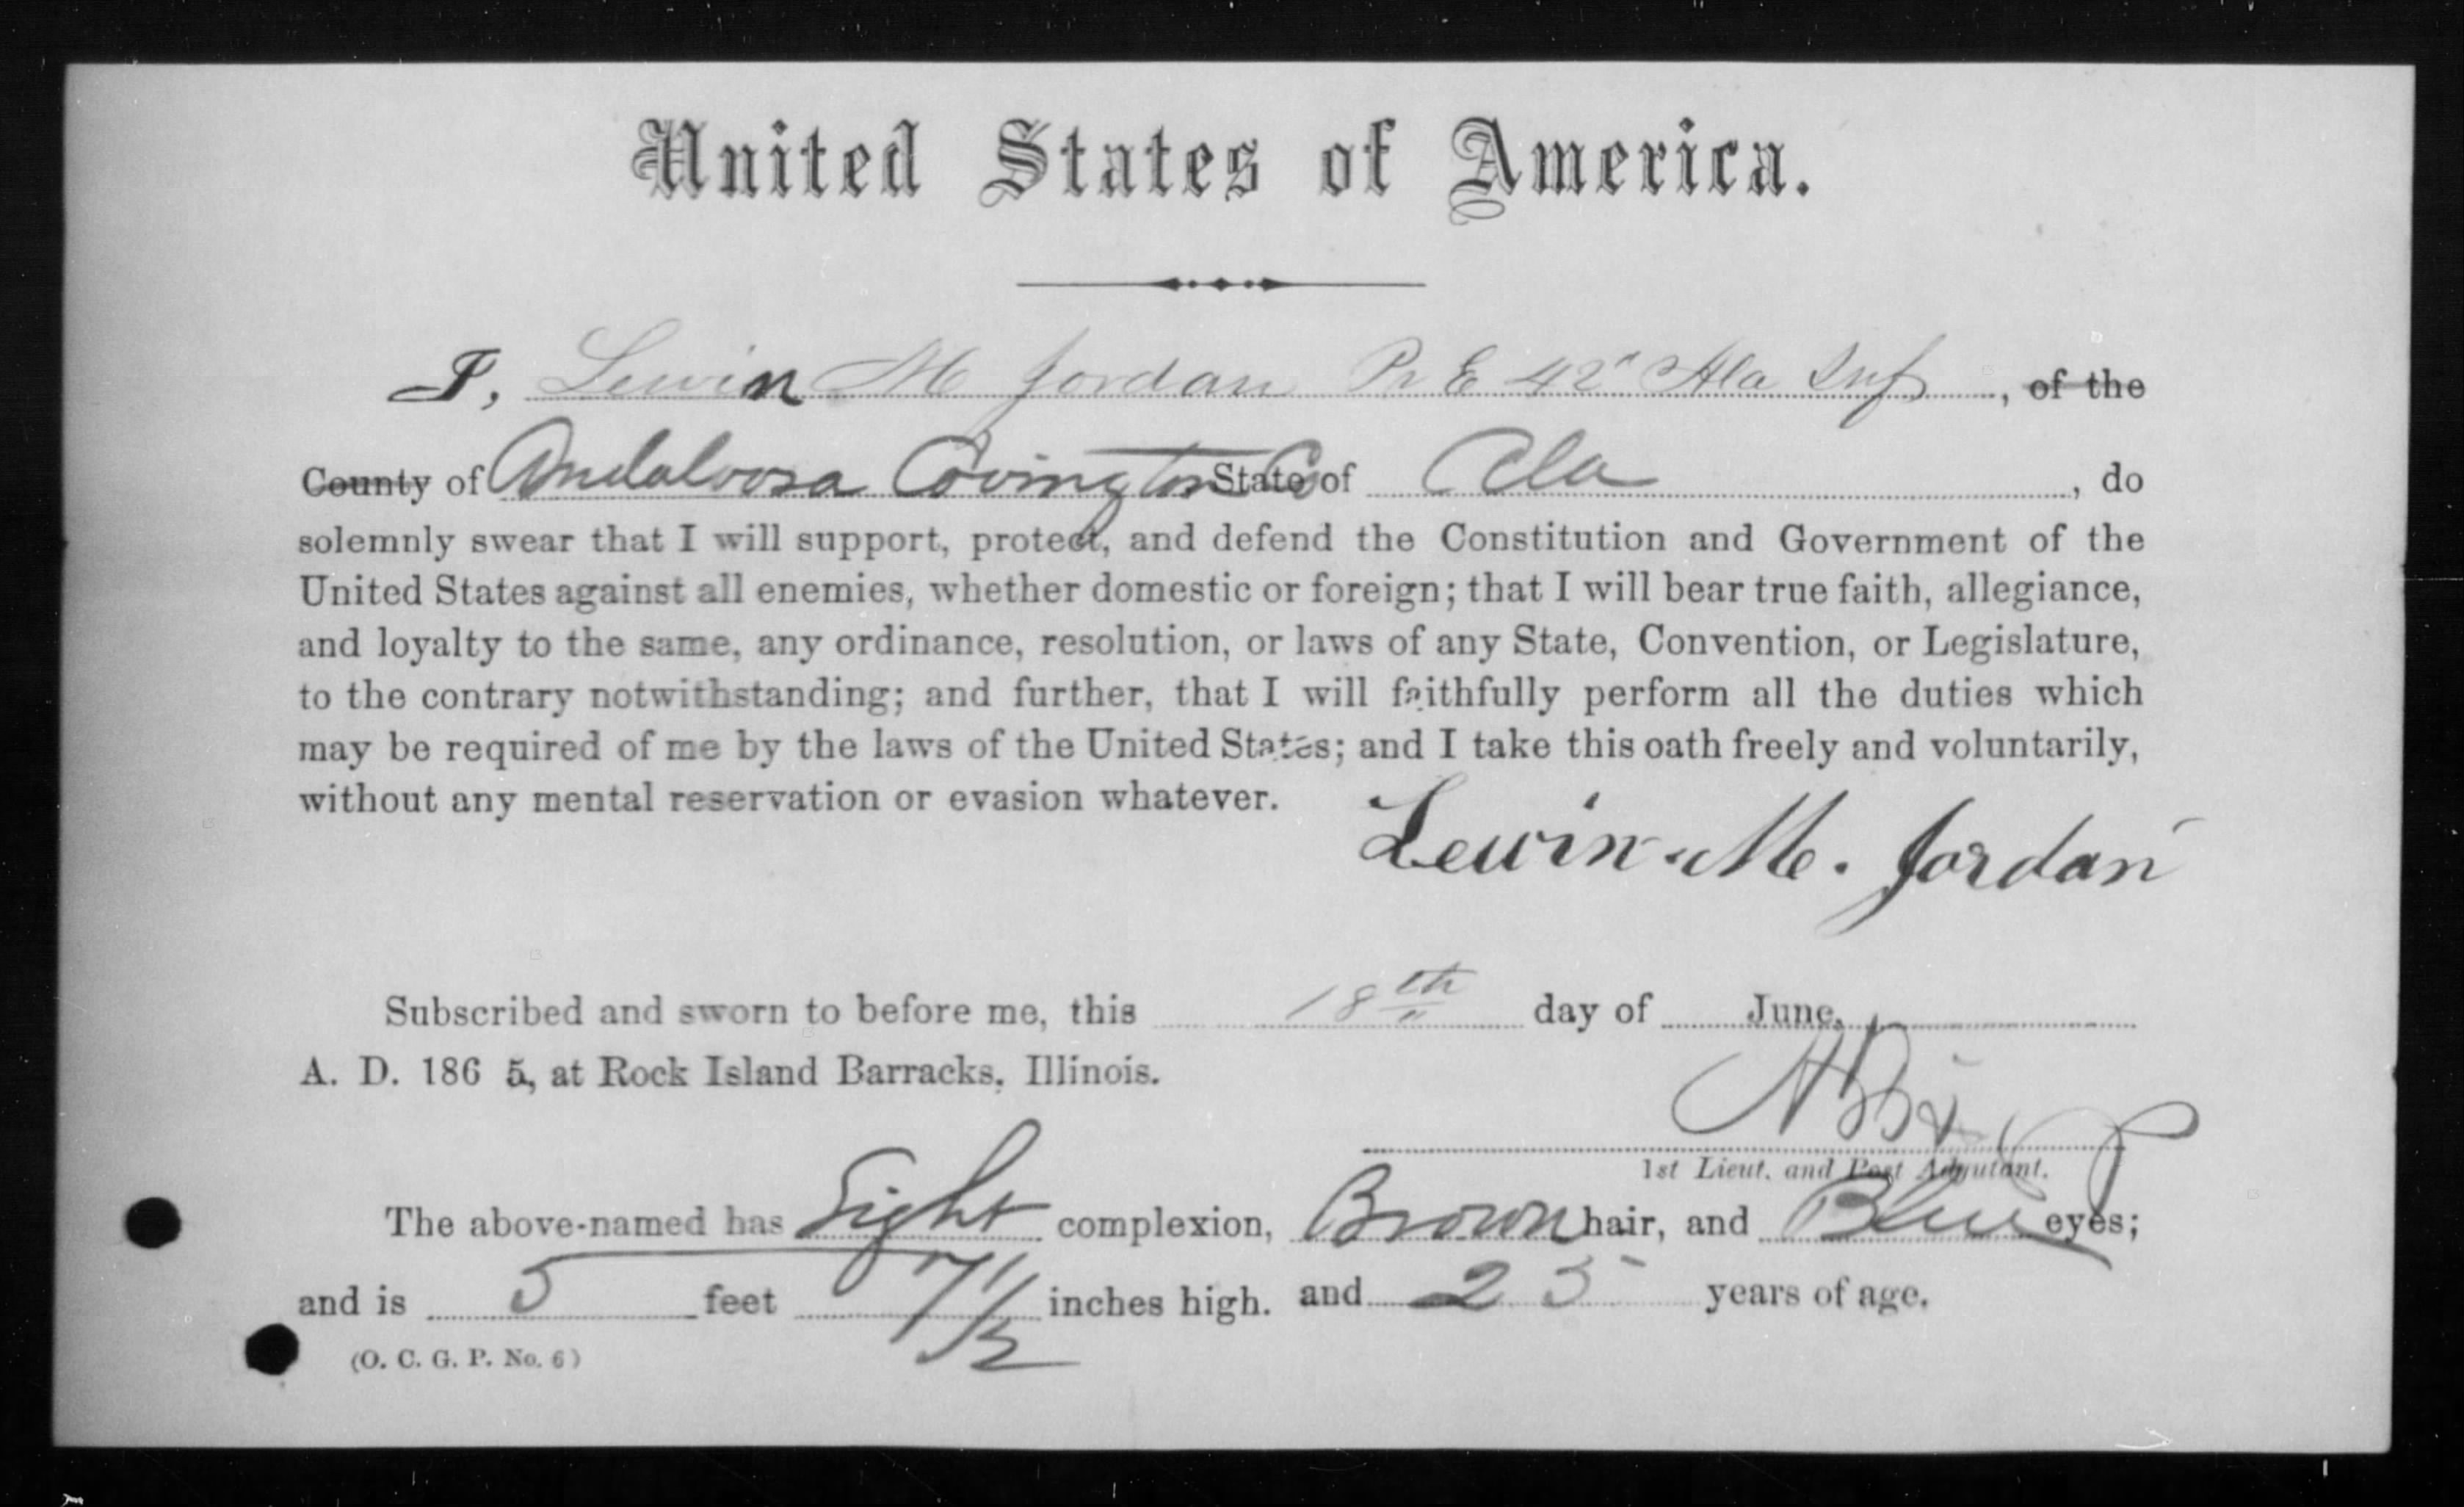 United States of America.
I, Lewin M Jordan Pr E 42" Ala Inf, of the
County of Andaloosa Covington Co State of Ala, do
solemnly swear that I will support, protect, and defend the Constitution and Government of the
United States against all enemies, whether domestic or foreign; that I will bear true faith, allegiance,
and loyalty to the same, any ordinance, resolution, or laws of any State, Convention, or Legislature,
to the contrary notwithstanding; and further, that I will faithfully perform all the duties which
may be required of me by the laws of the United States; and I take this oath freely and voluntarily,
without any mental reservation or evasion whatever.
Lewin M. Jordan
Subscribed and sworn to before me, this 18th day of June,
A. D. 1865, at Rock Island Barracks, Illinois.
1st Lieut. and Post Adjutant.
The above-named has Light complexion, Brown hair, and Blue eyes;
and is 5 feet 7 1/2 inches high. and 25 years of age.
(O. C. G. P. No. 6)